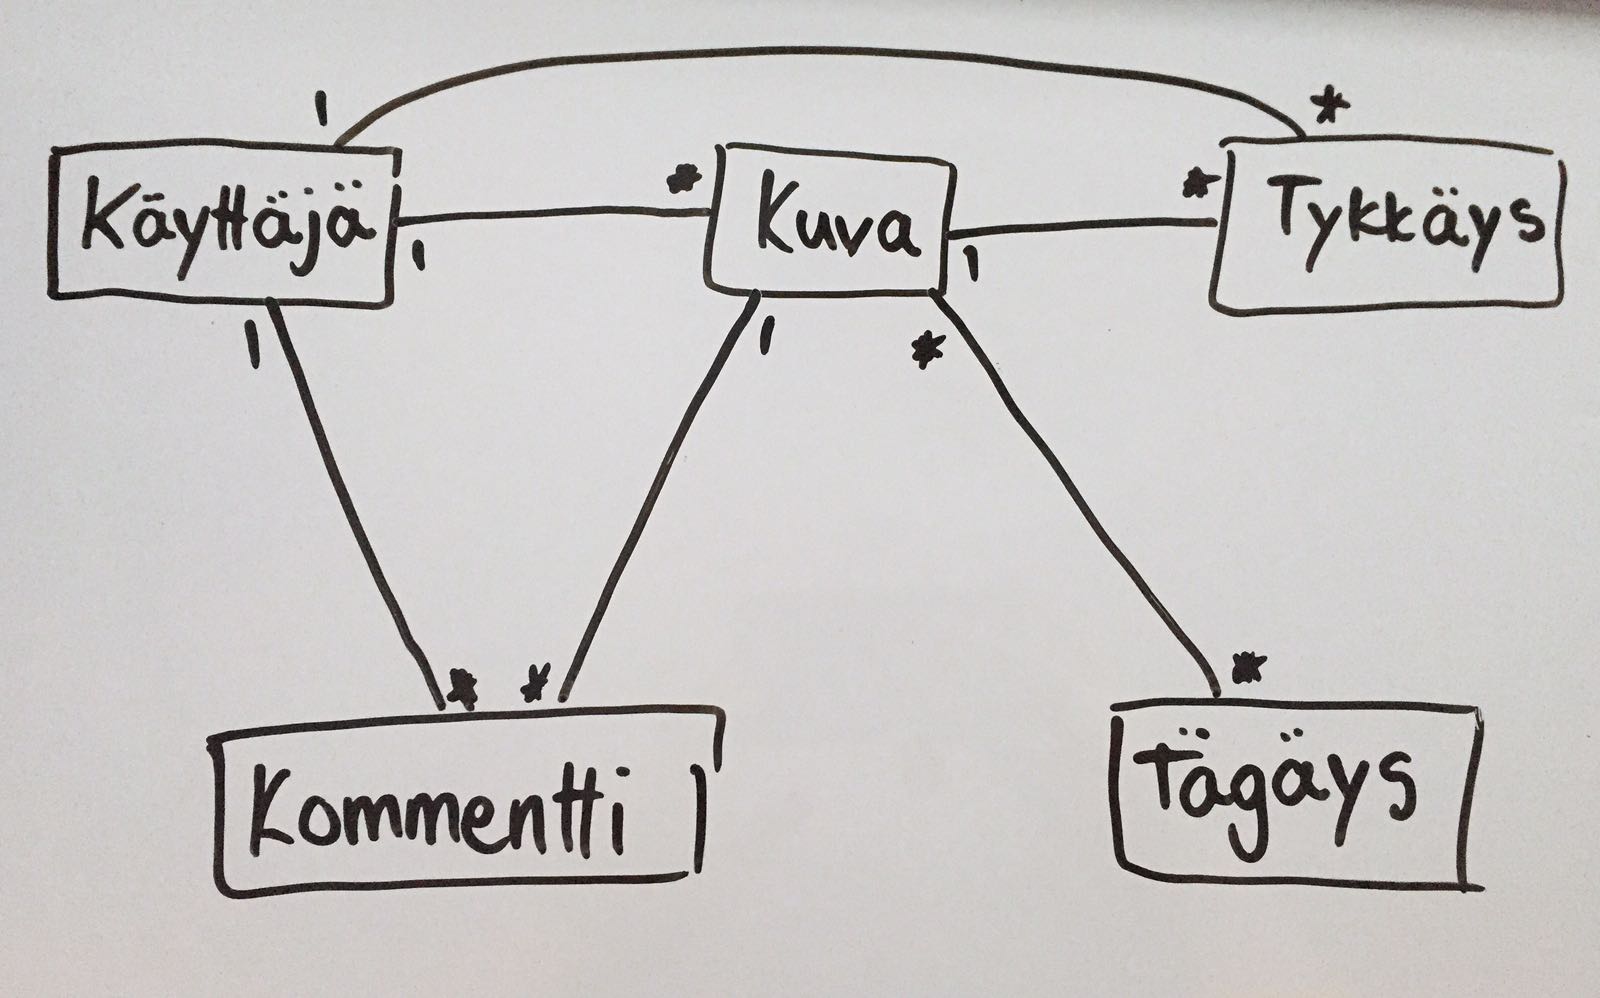 1
*
Käyttäjä
1
*
Kuva
1
*
Tykkäys
1
1
*
*
*
*
Kommentti
Tägäys